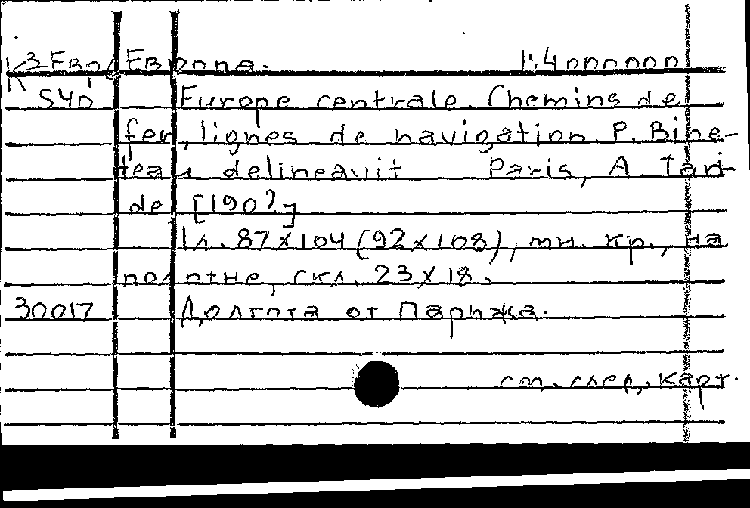 К 3-Евр/Европа. 1:4000000
540 Europe centrale. Chemins de
fer, lignes de navigation. P. Bine-
teau delineavit Paris, A Tari-
de [190?]
1 л. 87 x 104 (92 x 108), мн. кр., на
полотне, скл. 23 x 18.
30017 Долгота от Парижа.
см. след. карт.